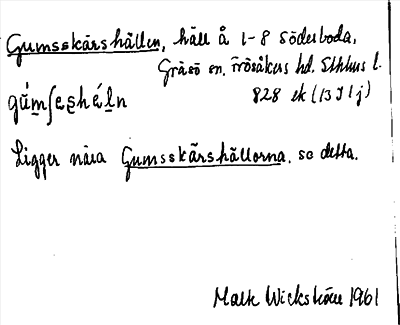 Gumsskärshällen, häll å 1-8 Söderboda,
Gräsö sn, Frösåkers hd. Sthlms l.
gúm̱ʃɛs̱hɛ́ḻn 828 ek (13 I 1 j)
Ligger nära Gumsskärshällorna, se detta.
Mats Wickström 1961